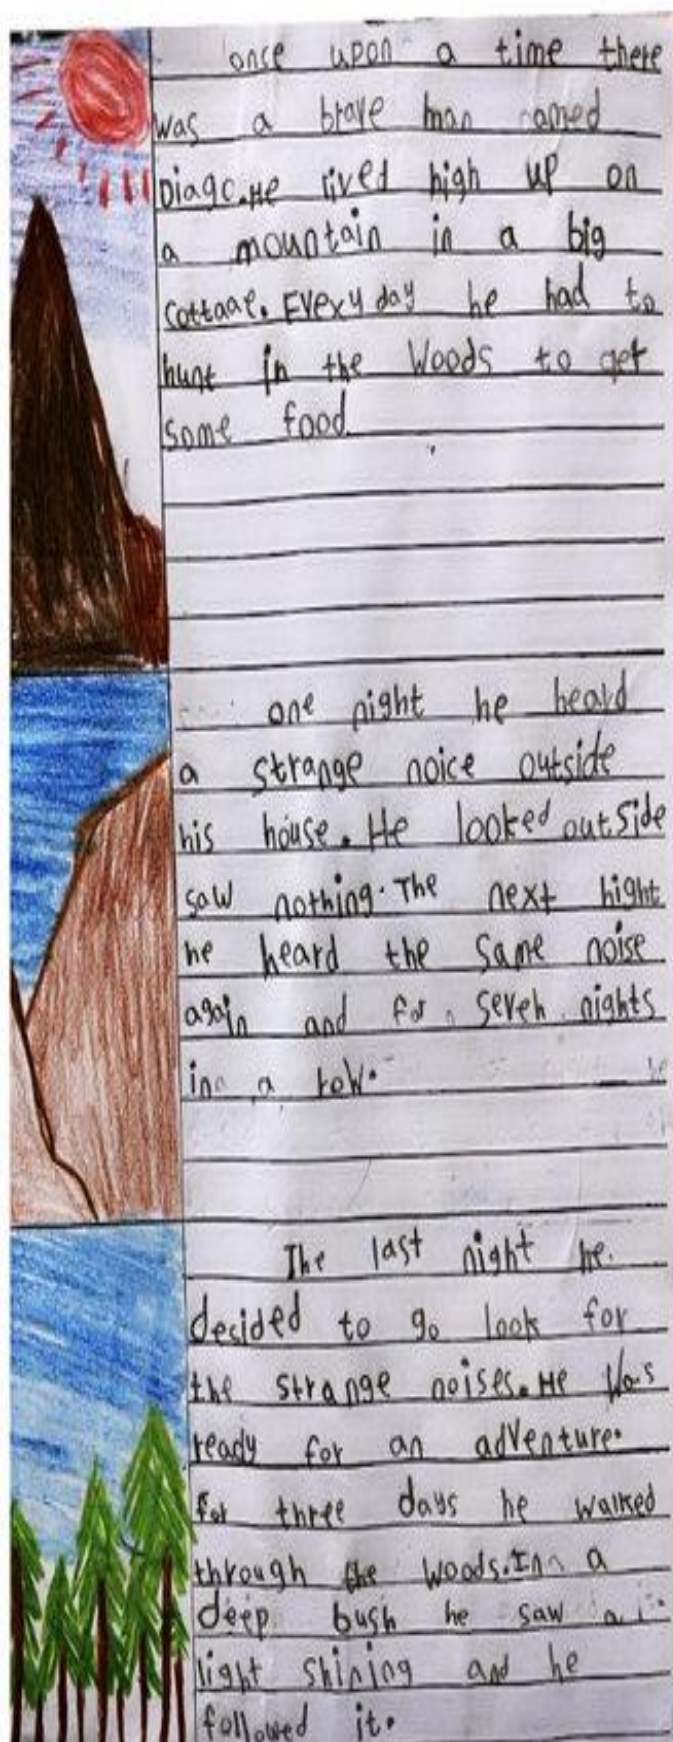 once upon a time there
was a brave man named
Diago.He lived high up on
a mountain in a big
cottage. Every day he had to
hunt in the woods to get
some food.
one night he heard
a strange noice outside
his house. He looked outside
saw nothing. The next night
he heard the same noise
again and for seven nights
in a row.
The last night he
desided to go look for
the strange noises. He was
ready for an adventure.
for three days he walked
through the woods. In a
deep bush he saw a
light shining and he
followed it.